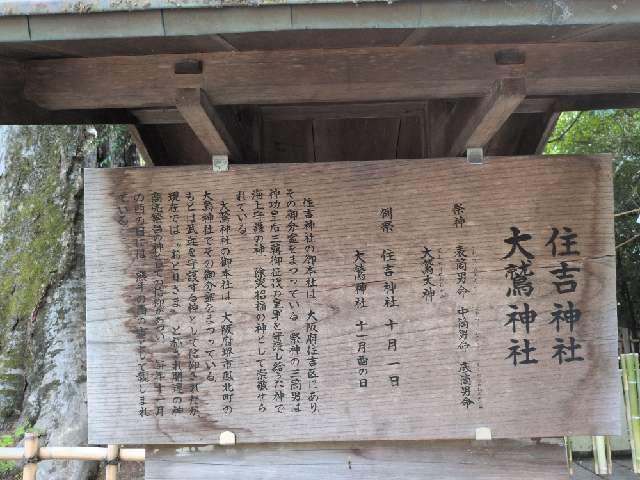 住吉神社
大鷲神社
祭神 表筒男命 中筒男命 底筒男命
大鷲大神
例祭 住吉神社 十月一日
大鷲神社 十一月酉の日
住吉神社の御本社は、大阪府住吉区にあり
その御分霊をまつっている。祭神の三筒男は
神功皇后三韓御征伐の皇軍を守護し給うた神で
海上守護の神、除災招福の神として崇敬せら
れている。
大鷲神社の御本社は、大阪府堺市鳳北町の
大鳥神社でその御分霊をまつっている。
もとは武運を守護する神として信仰されたが
現在では「おとりさま」と称され開運の神
商売繁昌の神として信仰が厚い。毎年十一月
の酉の日には、熊手の商が出て賑いまれ
ている。